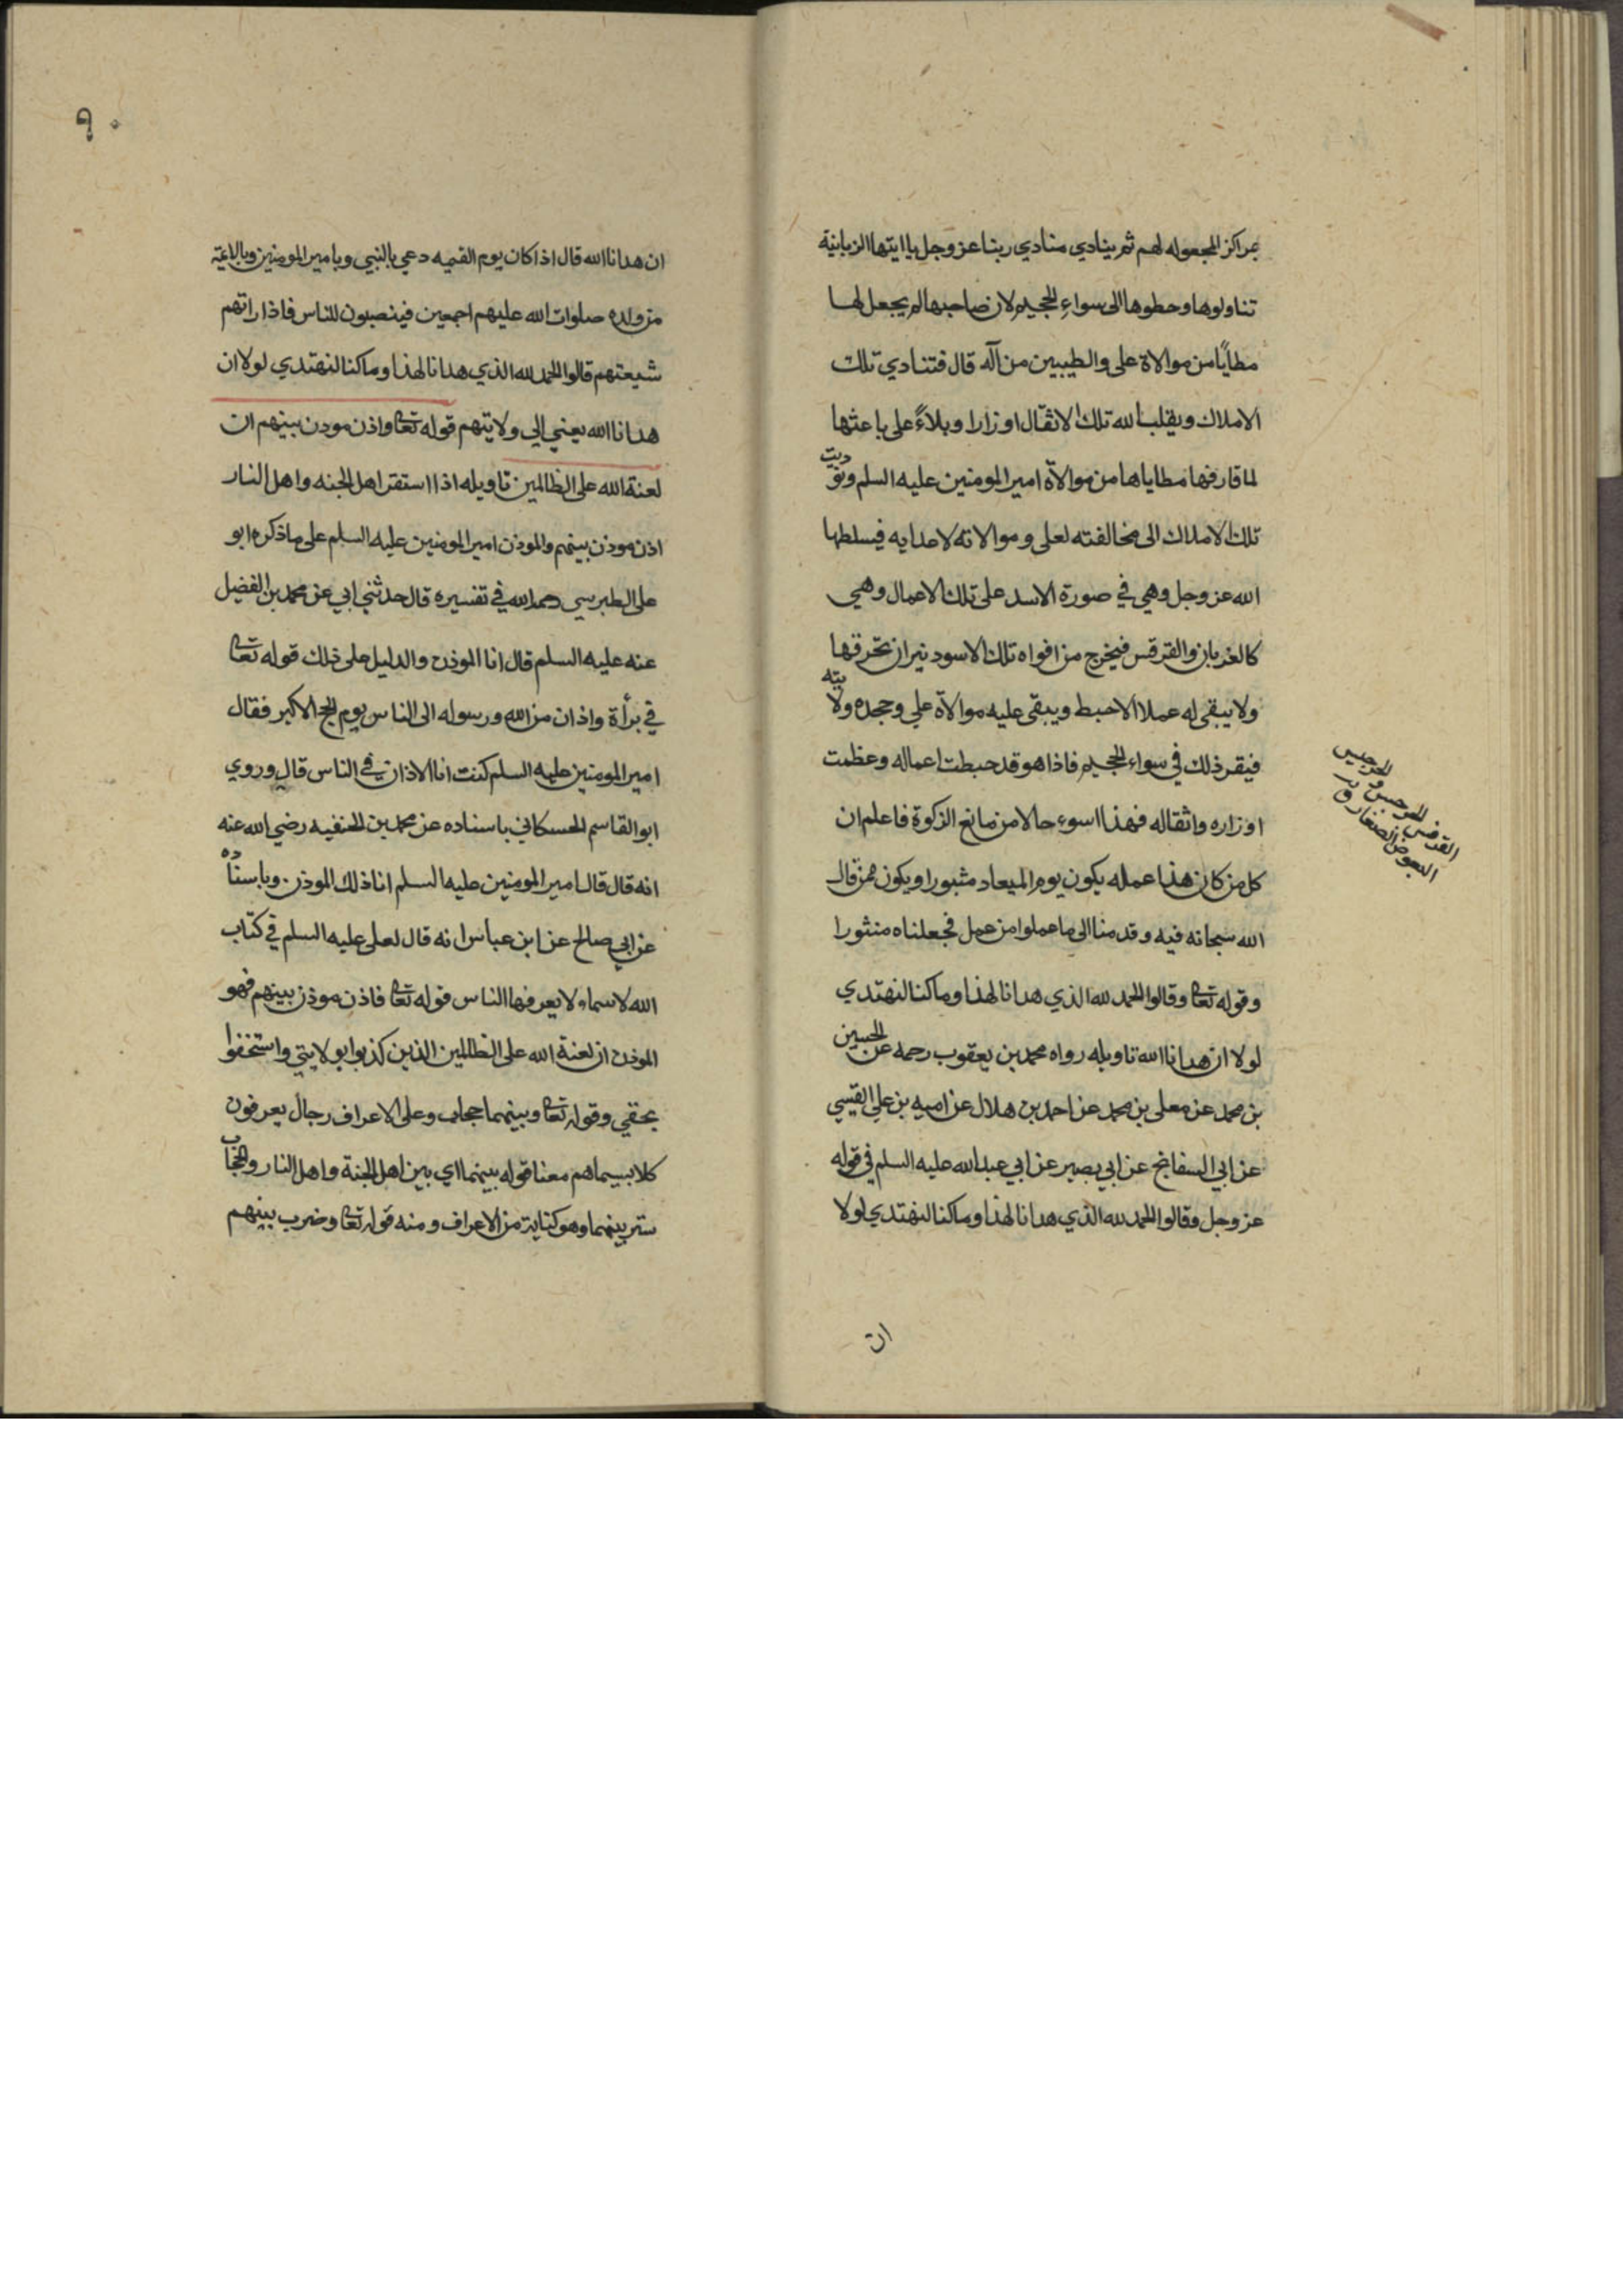 مراكز المجعوله لهم ثم ينادي منادي ربنا عز وجل يا ايتها الزبانية
تناولوها وحطوها الى سواء الجحيم لان صاحبها لم يجعل لها
مطايًا من موالاة على والطيبين من آله قال فتنادي تلك
الاملاك ويقلب الله تلك الاثقال اوزارا وبلاءً على باعثها
لما قارفها مطاياها من موالاة امير المومنين عليه السلم ونوديت
تلك الاملاك الى مخالفته لعلى وموالاته لاعدايه فيسلطها
الله عز وجل وهي في صورة الاسد على تلك الاعمال وهي
كالغربان والقرقس فيخرج من افواه تلك الاسود نيران تحرقها
ولا يبقى له عملا الا حبط ويبقى عليه موالاة علي وجحده ولايته
فيقر ذلك في سواء الجحيم فاذا هو قد حبطت اعماله وعظمت
اوزاره واثقاله فهذا اسوء حالا من مانع الزكوة فاعلم ان
كل من كان هذا عمله يكون يوم الميعاد مثبورا ويكون ممن قال
الله سبحانه فيه وقدمنا الى ما عملوا من عمل فجعلناه منثورا
وقوله تعا وقالوا الحمد لله الذي هدانا لهذا وما كنا لنهتدي
لولا ان هدانا الله تاويله رواه محمد بن يعقوب رحمه عن الحسين
بن محمد عن معلى بن محمد عن احمد بن هلال عن اميه بن علي القيسي
عن ابي السفاتج عن ابي بصير عن ابي عبد الله عليه السلم في قوله
عز وجل وقالوا الحمد لله الذي هدانا لهذا وما كنا لنهتدي لولا
ان
البعوض الصغار ق
٩٠
ان هدانا الله قال اذا كان يوم القيمه دعي بالنبي وبامير المومنين وبالايمة
من ولده صلوات الله عليهم اجمعين فينصبون للناس فاذا راتهم
شيعتهم قالوا الحمد لله الذي هدانا لهذا وما كنا لنهتدي لولا ان
هدانا الله يعني الى ولايتهم قوله تعا واذن مودن بينهم ان
لعنة الله على الظالمين تاويله اذا استقر اهل الجنه واهل النار
اذن موذن بينهم والموذن امير المومنين عليه السلم على ما ذكره ابو
على الطبرسي رحمه الله في تفسيره قال حدثني ابي عن محمد بن الفضيل
عنه عليه السلم قال انا الموذن والدليل على ذلك قوله تعا
في برأة واذان من الله ورسوله الى الناس يوم الحج الاكبر فقال
امير المومنين عليه السلم كنت انا الاذان في الناس قال وروي
ابو القاسم الحسكاني باسناده عن محمد بن الحنفيه رضي الله عنه
انه قال قال امير المومنين عليه السلم انا ذلك الموذن وباسناده
عن ابي صالح عن ابن عباس انه قال لعلى عليه السلم في كتاب
الله لاسماء لا يعرفها الناس قوله تعا فاذن موذن بينهم فهو
الموذن ان لعنة الله على الظالمين الذين كذبوا بولايتي واستخفوا
بحقي وقوله تعا وبينهما حجاب وعلى الاعراف رجال يعرفون
كلا بسيماهم معنا قوله بينهما اي بين اهل الجنة واهل النار والحجاب
ستر بينهما وهو كناية من الاعراف ومنه قوله تعا وضرب بينهم